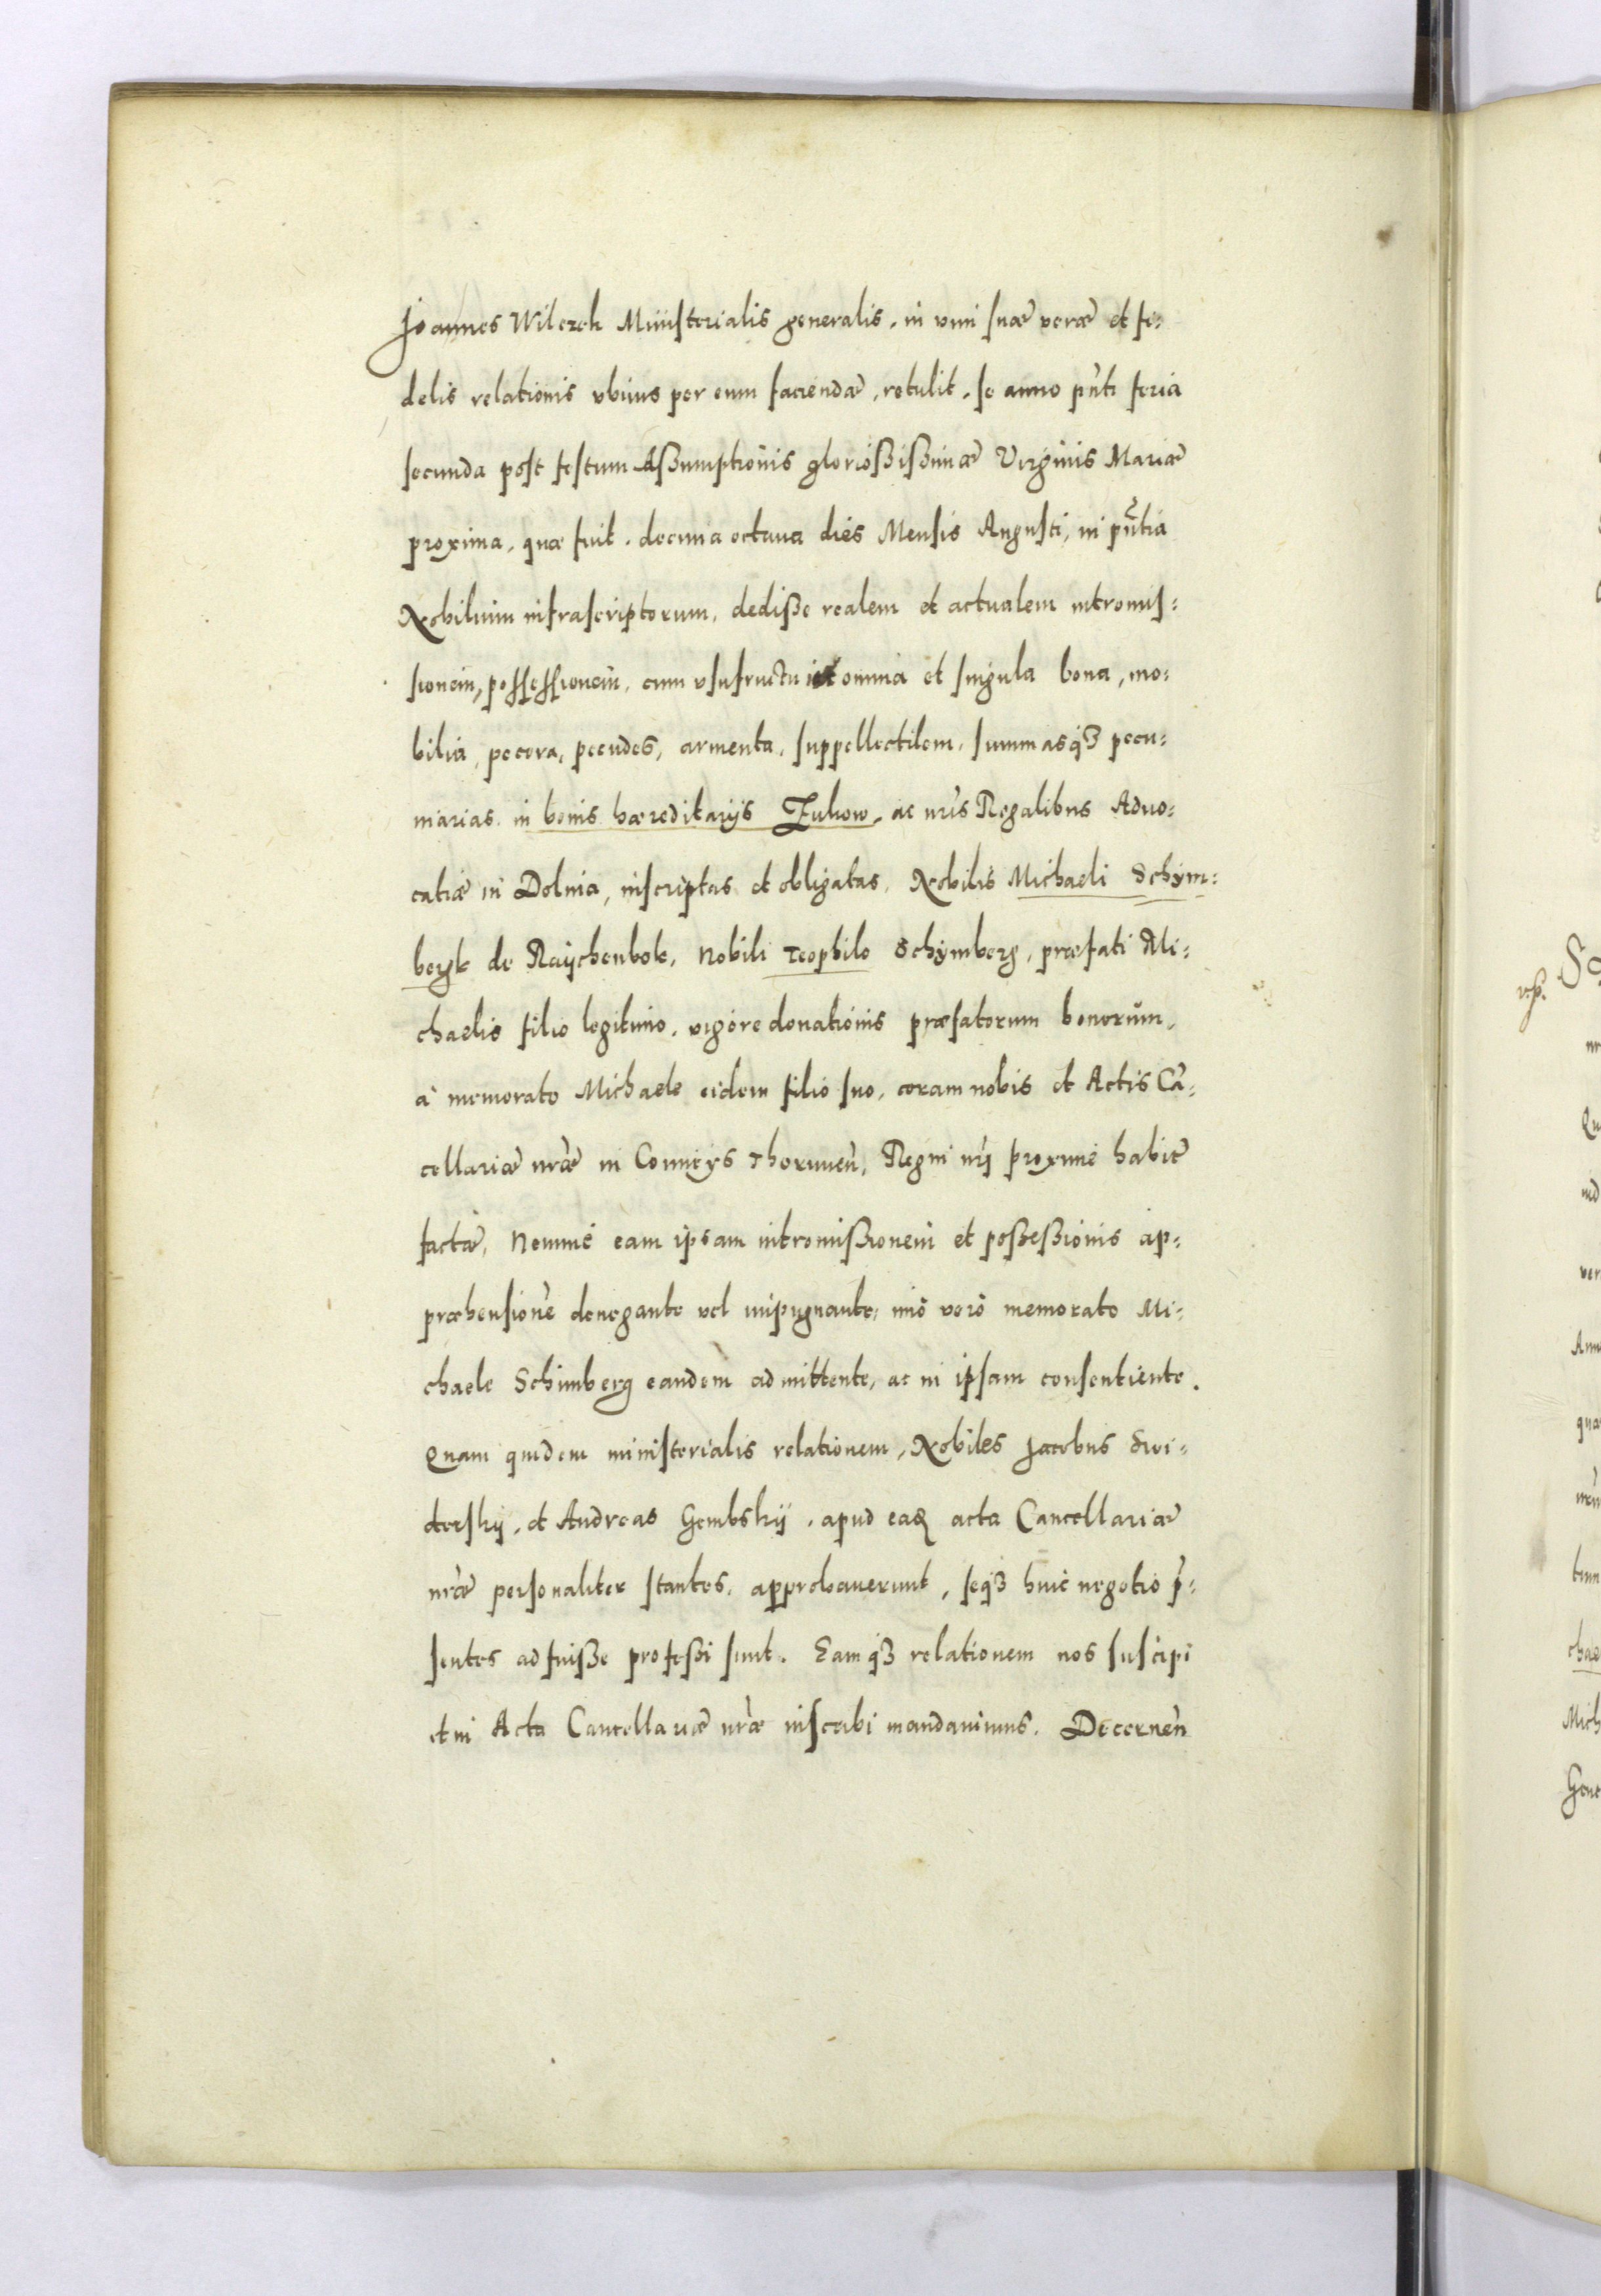 Joannes Wilczek Ministerialis generalis, in vim suæ veræ et fi=
delis relationis vbiuis per eum faciendæ, retulit, se anno pñti feria
secunda post festum Aßumptionis glorioßißimæ Virginis Mariæ
proxima, quæ fuit decima octaua dies Mensis Augusti, in pñtia
Nobilium infrascriptorum, dediße realem et actualem intromis=
sionem, possessionem, cum vsufructu omnia et singula bona, mo=
bilia, pecora, pecudes, armenta, suppellectilem, summasq3 pecu=
niarias in bonis hæreditarijs Zukow, ac nr̃is Regalibus Aduo=
catiæ in Dolnia, inscriptas et obligatas, Nobilis Michaeli Schym=
bergk de Raÿchenbok, Nobili Teophilo Schÿmberg, præfati Mi=
chaelis filio legitimo, vigore donationis præfatorum bonorũm,
à memorato Michaele eidem filio suo, coram nobis et Actis Cã=
cellariæ nr̃æ in Comitÿs Thorunen̄, Regni nr̃j proxime habit̃
factæ, Nemine eam ipsam intromißionem et poßeßionis ap=
præhensionẽ denegante vel impugnante, imò verò memorato Mi=
chaele Schimberg eandem admittente, ac in ipsam consentiente.
Quam quidem ministerialis relationem, Nobiles Jacobus Swi=
derskij, et Andreas Gembskij, apud eaꝶ acta Cancellariæ
nr̃æ personaliter stantes, approbauerunt, seq3 huic negotio p̃=
sentes adfuiße profeßi sunt. Eamq3 relationem nos suscipi
et in Acta Cancellariæ nr̃æ inscribi mandauimus. Decernen̄
v.p.